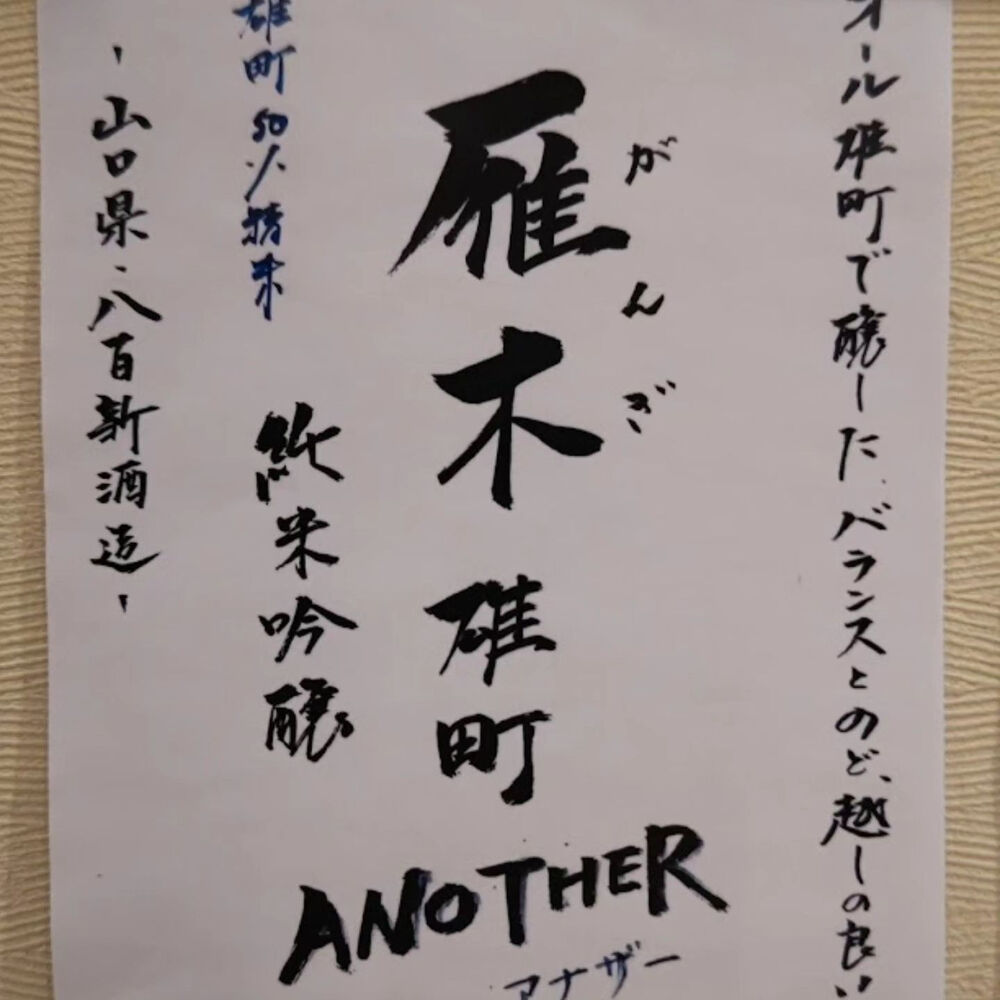 オール雄町で醸した、バランスとのど越しの良い
がんぎ
雁木
雄町
ANOTHER
アナザー
純米吟醸
雄町50%精米
-山口県・八百新酒造-